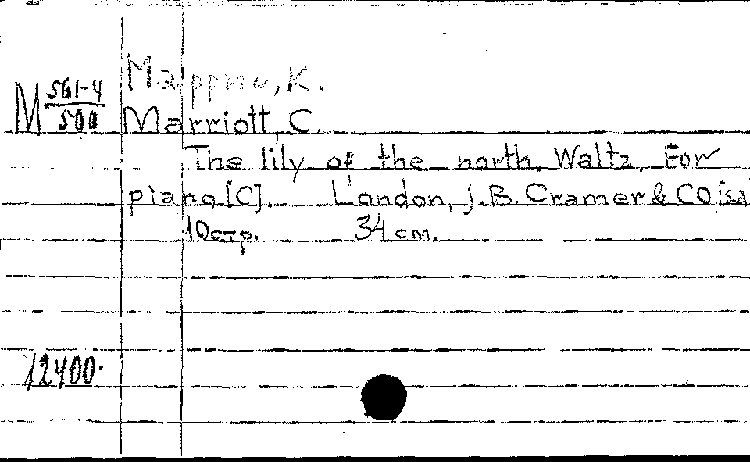 М 561-4/500
Марриот, К.
Marriott, C.
The lily of the north. Waltz. For
piano [C]. London, J.B. Cramer & CO [s.a]
10 стр. 34 cm.
12400.